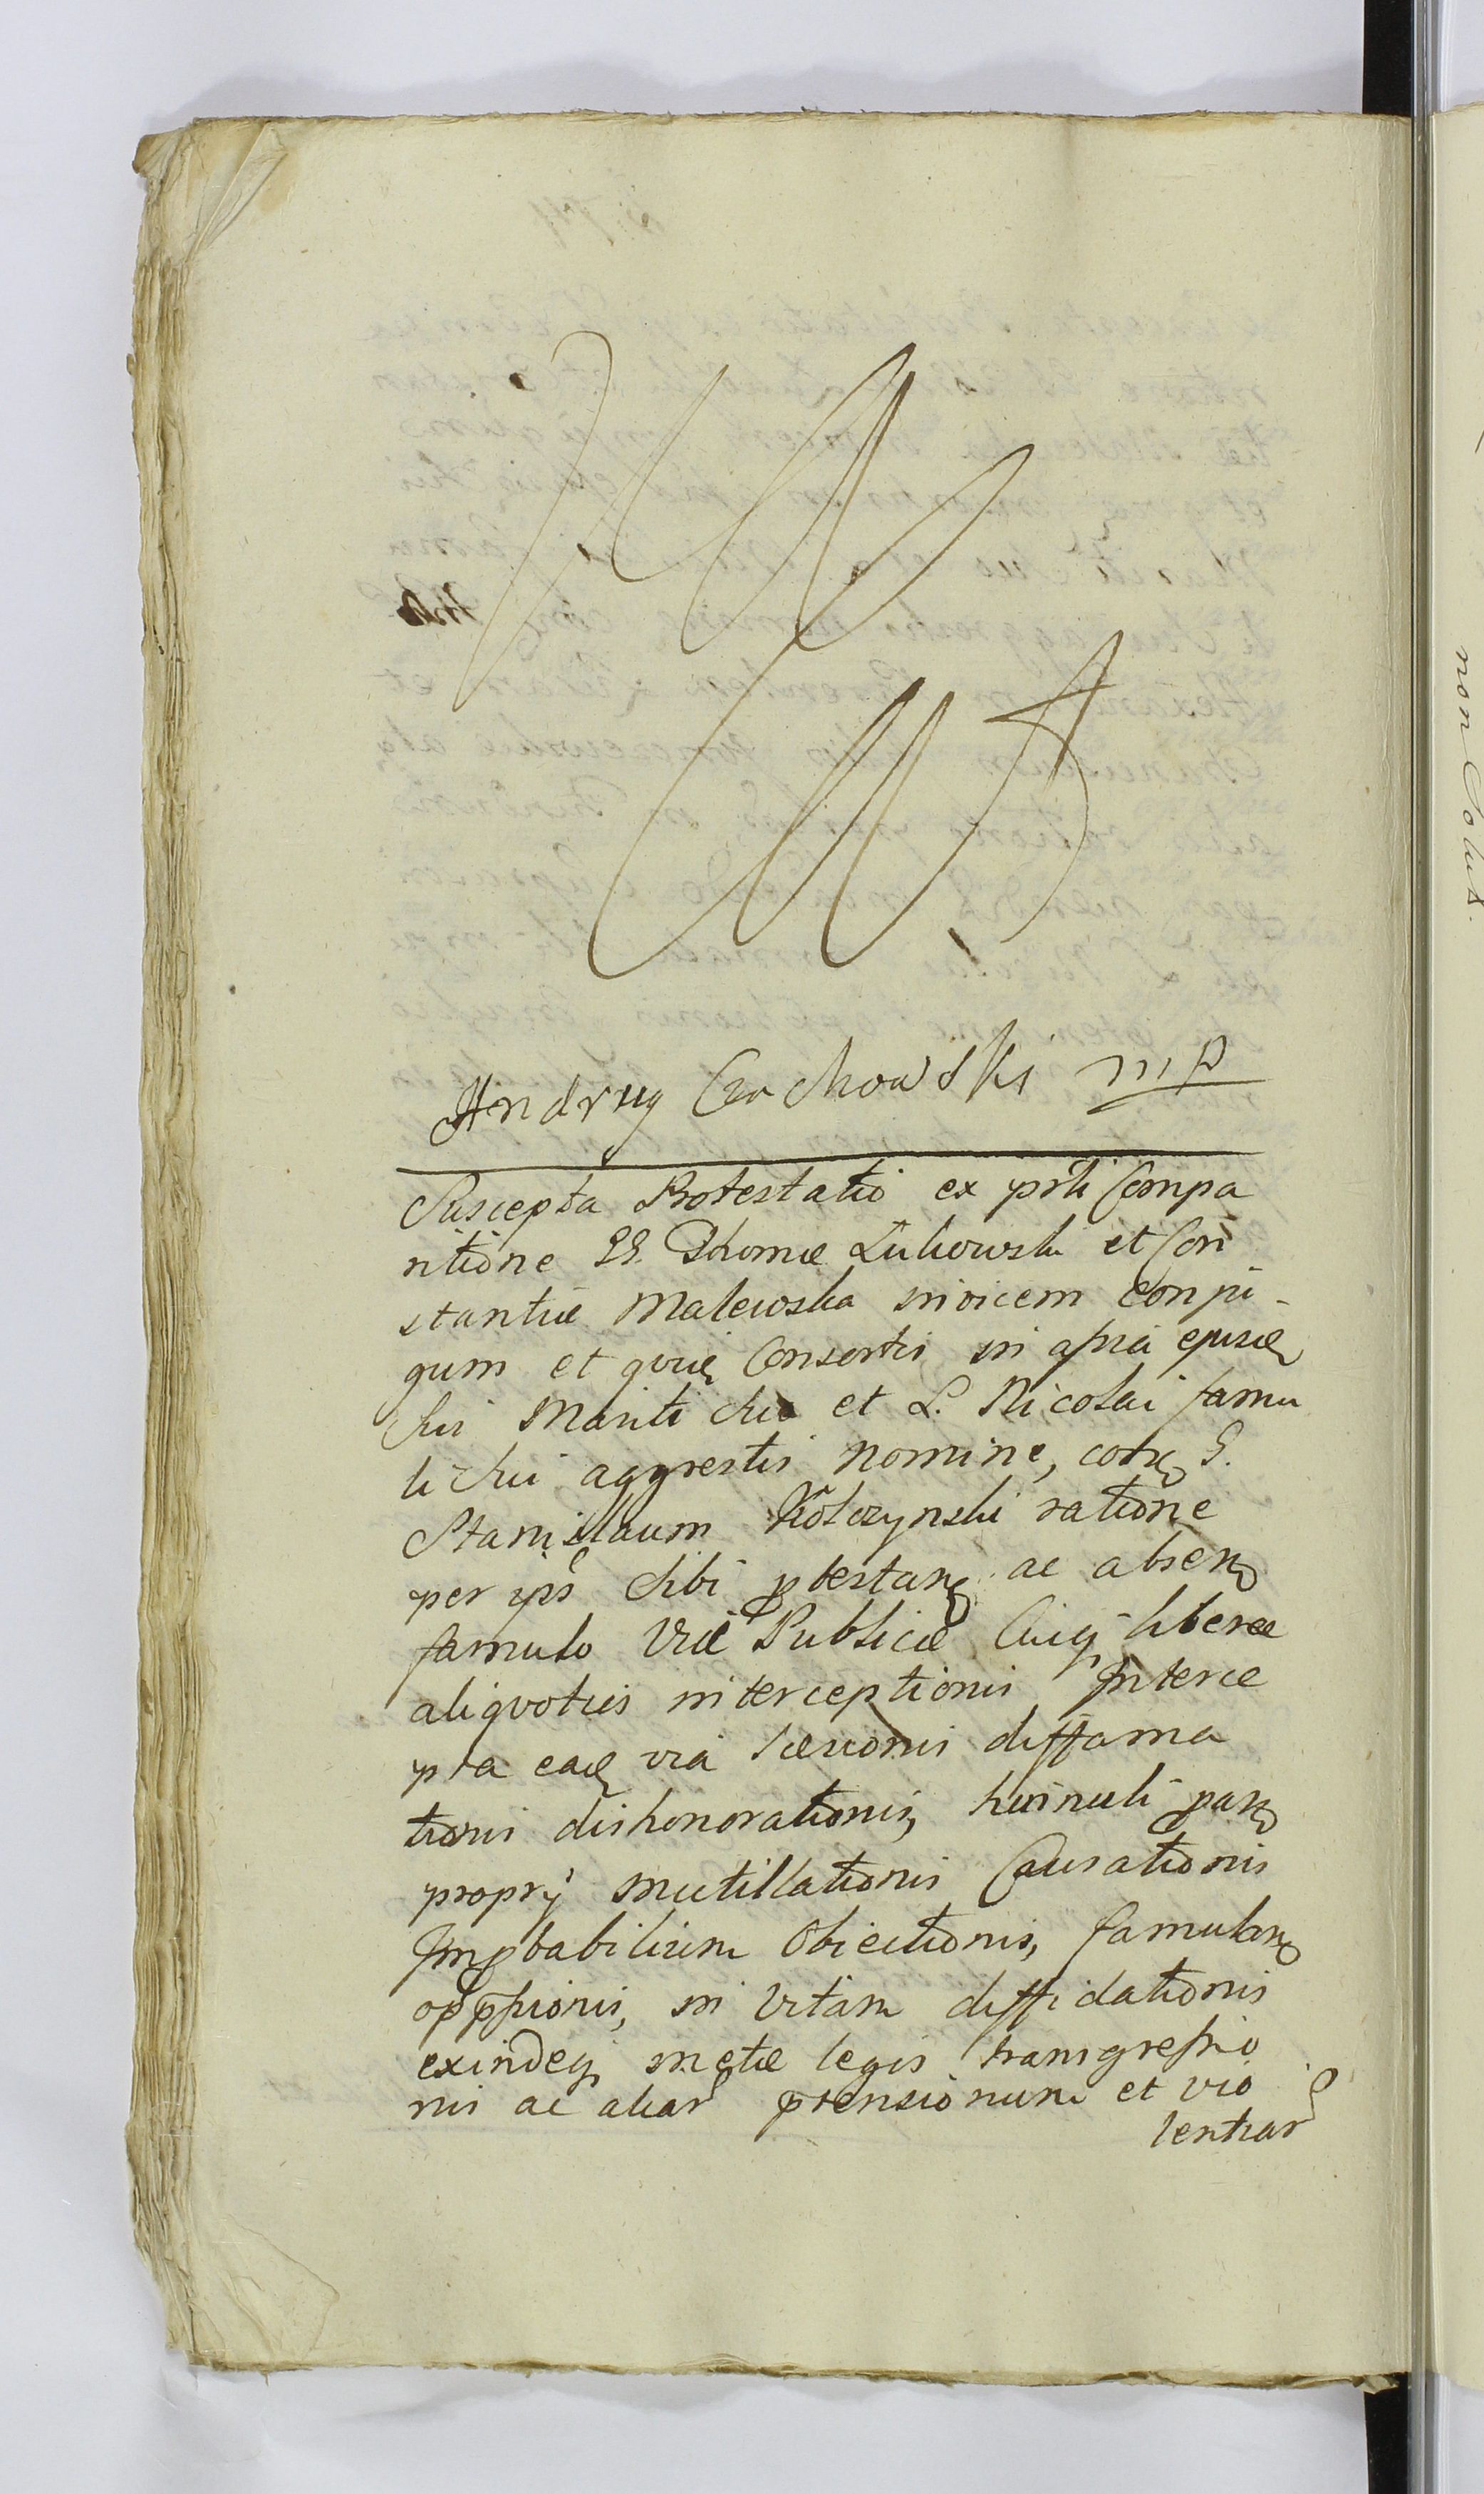 Andrzy Czochowski mp
Suscepta Protestatio ex prli Compa
ritione GG. Thomæ Lukowski et Con
stantiæ Malewska invicem conju-
gum et quæ Consortis in assia ejusd
sui Mariti sua et L. Nicolai famu
li sui aggrestis nomine, cotra G.
Stanislaum Kołczynski ratione
per ips sibi ptestan ac absen
famulo Viæ Publicæ Cuiq liberæ
aliquoties interceptionis Interce
pta ead via sævonis diffama
tionis dishonorationis, hinnuli pan
proprÿ mutillationis Causationis
Improbabilium Obiectionis, famulan
oppssionis, in Vitam diffidationis
exindeq metæ legis transgressio
nis ac aliar prensionum et vio
lentiar
non Coluit.